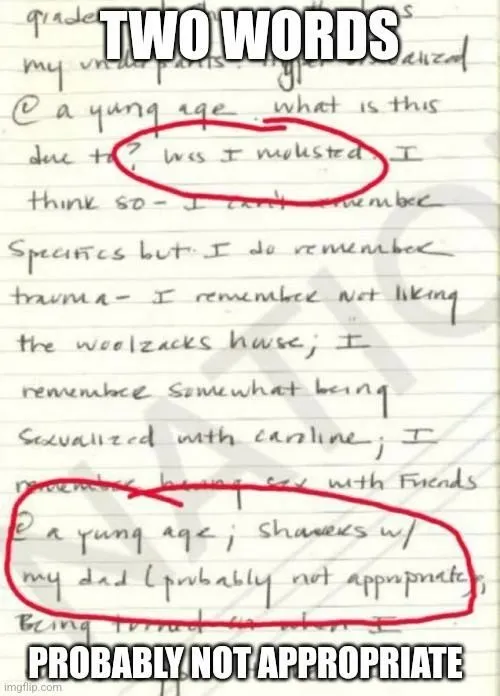 TWO WORDS
my
@ a yung age. what is this
due to? Was I molested. I
think so - I can't remember
specifics but I do remember
trauma - I remember not liking
the woolzacks house; I
remember somewhat being
sexualized with caroline; I
remember having sex with friends
@ a yung age; showers w/
my dad (probably not appropriate);
Being turned when I
PROBABLY NOT APPROPRIATE
imgflip.com